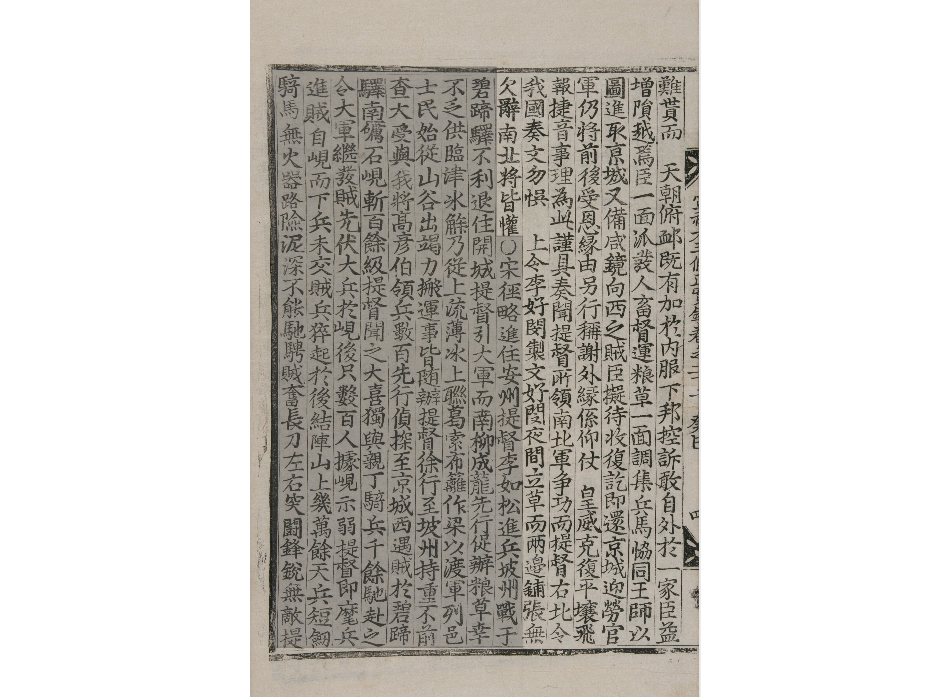 難貫而　天朝俯邺既有加於內服下邦控訴敢自外於一家臣益
增隕越焉臣一面派發人畜督運粮草一面調集兵馬恊同王師以
圖進取京城又備咸鏡向西之賊臣擬待收復訖即還京城迎勞官
軍仍將前後受恩緣由另行稱謝外緣係仰仗　皇威克復平壤飛
報捷音事理為此謹具奏聞提督所領南北軍爭功而提督右北令
我國奏文勿悞　上令李好閔製文好閔夜間立草而兩邊鋪張無
欠辭南北將皆懽○宋徑略進住安州提督李如松進兵坡州戰于
碧蹄驛不利退住開城提督引大軍而南柳成龍先行促辦粮草幸
不乏供臨津氷解乃從上流薄氷上聮葛索布籬作梁以渡軍列邑
士民始從山谷出竭力搬運事皆随辦提督徐行至坡州持重不前
查大受與我將高彥伯領兵數百先行偵探至京城西遇賊於碧蹄
驛南礪石峴斬百餘級提督聞之大喜獨與親丁騎兵千餘馳赴之
令大軍継發賊先伏大兵於峴後只數百人據峴示弱提督即麾兵
進賊自峴而下兵未交賊兵猝起於後結陣山上幾萬餘天兵短劒
騎馬無火器路險泥深不能馳騁賊奮長刀左右突鬪鋒銳無敵提